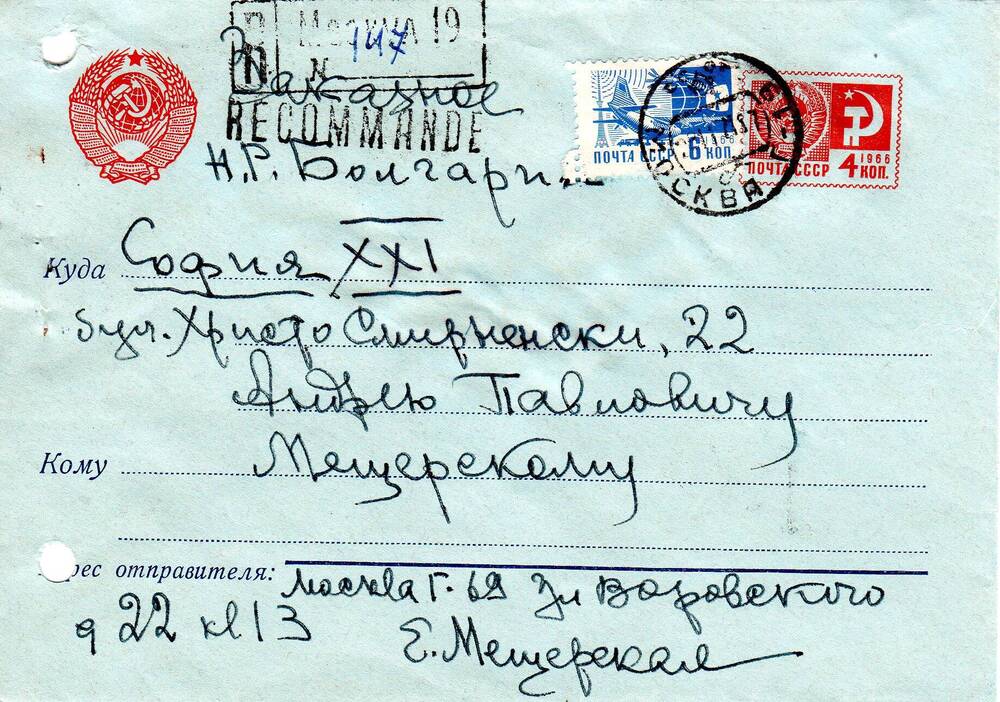 R Москва 19
N 147
Заказное
RECOMMANDE
Н.Р. Болгария
ПОЧТА СССР 6 КОП.
МОСКВА
1966
ПОЧТА СССР 4 КОП.
Куда София XXI
бул. Христо Смирненски, 22
Андрею Павловичу
Кому Мещерскому
рес отправителя: Москва Г-69 Ул Воровского
д 22 кв 13
Е. Мещерская